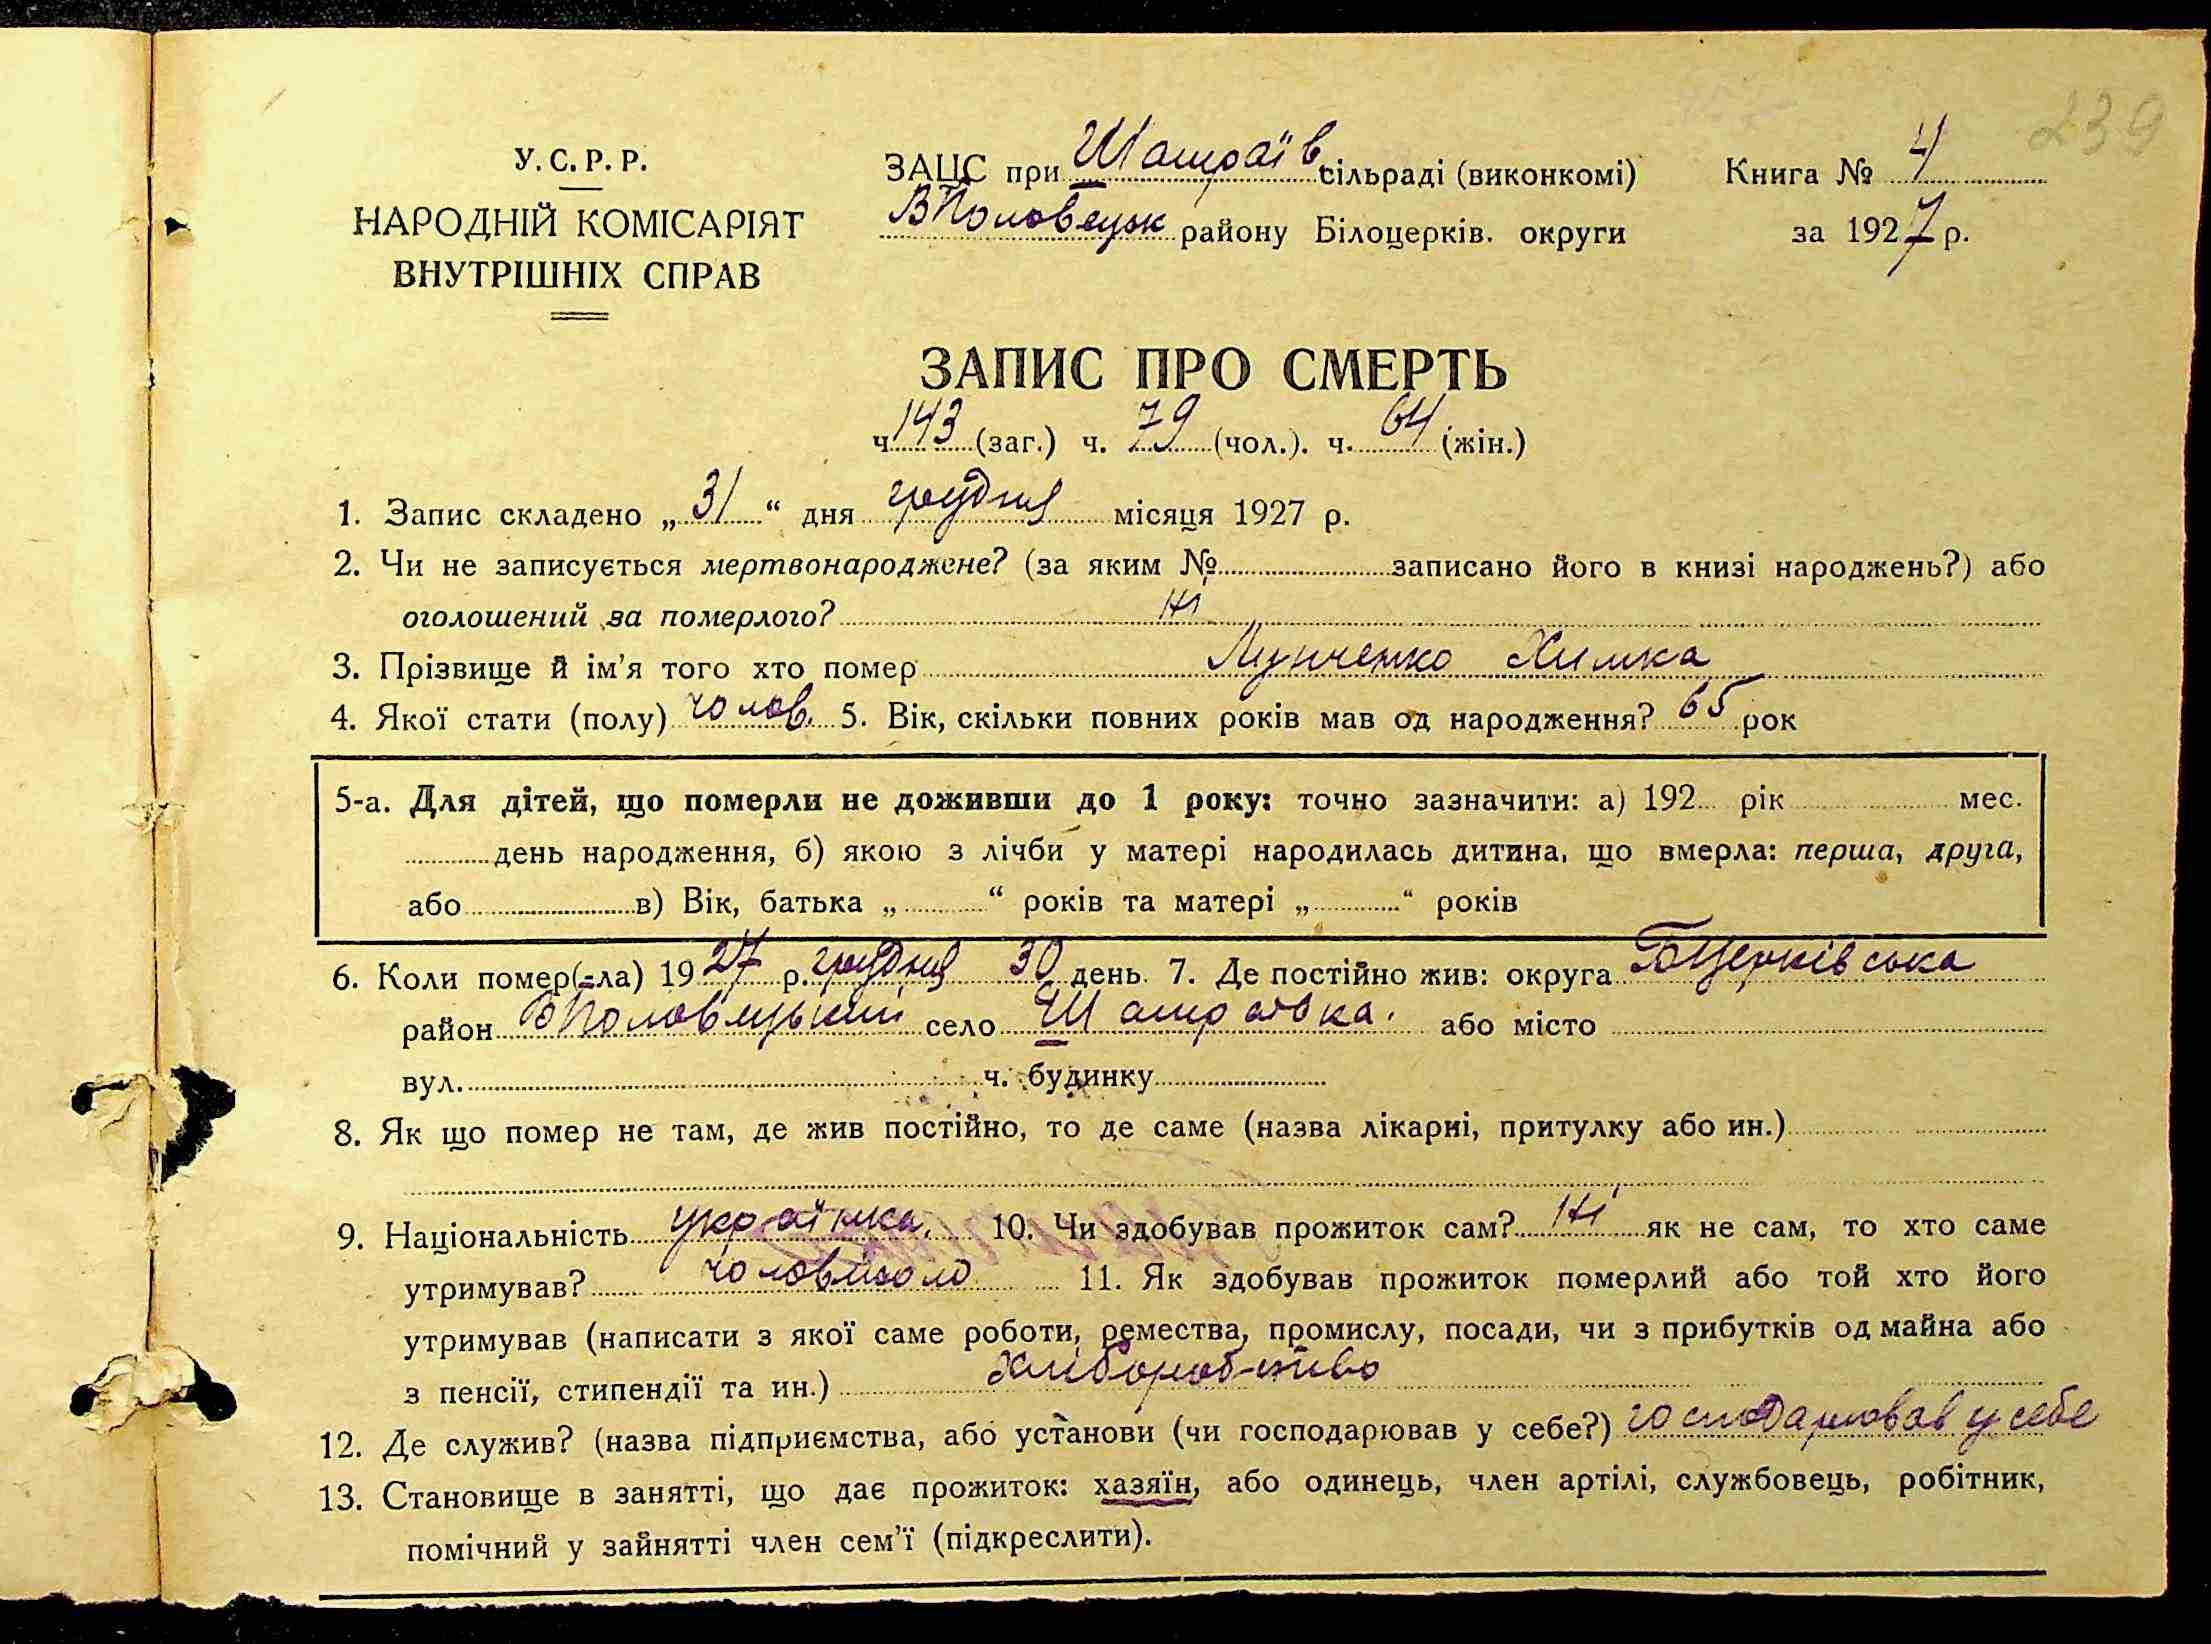 239
У.С.Р.Р.
НАРОДНІЙ КОМІСАРІЯТ
ВНУТРІШНІХ СПРАВ
ЗАЦС при Шамраїв сільраді (виконкомі)
ВПоловецьк району Білоцерків. округи
Книга № 4
за 1927 р.
ЗАПИС ПРО СМЕРТЬ
ч. 143 (заг.) ч. 79 (чол.). ч. 64 (жін.)
1. Запис складено „31“ дня грудня місяця 1927 р.
2. Чи не записується мертвонароджене? (за яким № записано його в книзі народжень?) або
оголошений за померлого? Ні
3. Прізвище й ім’я того хто помер Лунченко Химка
4. Якої стати (полу) чолов. 5. Вік, скільки повних років мав од народження? 65 рок
5-а. Для дітей, що померли не доживши до 1 року: точно зазначити: а) 192 рік мес.
день народження, б) якою з лічби у матері народилась дитина, що вмерла: перша, друга,
або в) Вік, батька „ “ років та матері „ “ років
6. Коли помер(-ла) 1927 р. грудня 30 день. 7. Де постійно жив: округа БЦерківська
район ВПоловецький село Шамраївка. або місто
вул. ч. будинку
8. Як що помер не там, де жив постійно, то де саме (назва лікарні, притулку або ин.)
9. Національність українка. 10. Чи здобував прожиток сам? Ні як не сам, то хто саме
утримував? 11. Як здобував прожиток померлий або той хто його
утримував (написати з якої саме роботи, ремества, промислу, посади, чи з прибутків од майна або
з пенсії, стипендії та ин.) Хліборобство
12. Де служив? (назва підприємства, або установи (чи господарював у себе?) господарював у себе
13. Становище в занятті, що дає прожиток: хазяїн, або одинець, член артілі, службовець, робітник,
помічний у зайнятті член сем’ї (підкреслити).